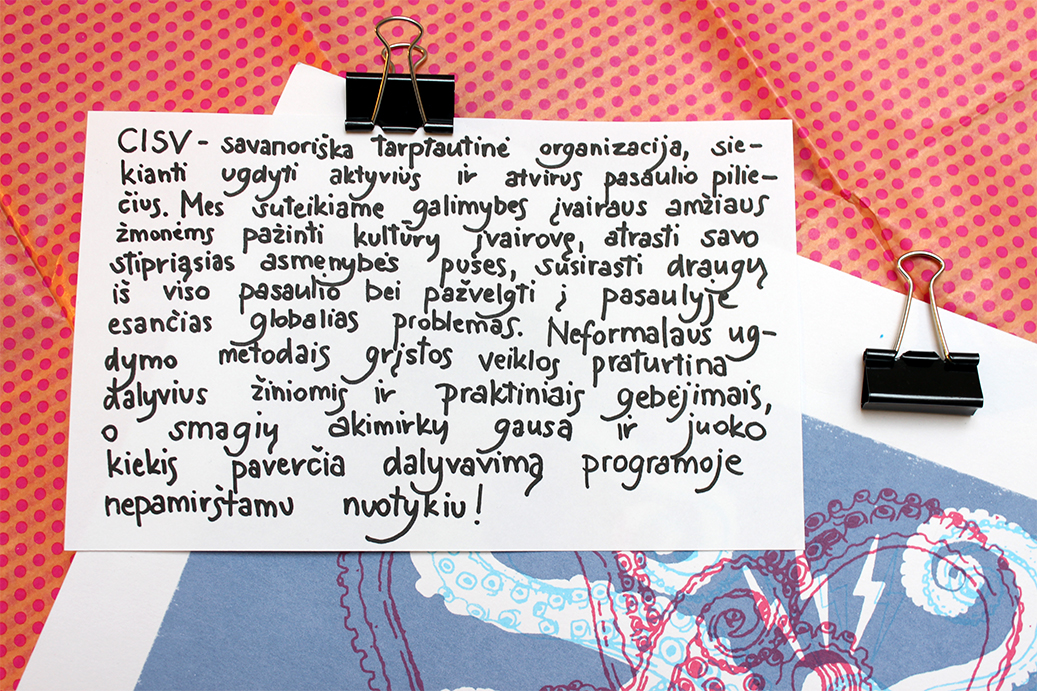 CISV - savanoriška tarptautinė organizacija, sie-
kianti ugdyti aktyvius ir atvirus pasaulio pilie-
čius. Mes suteikiame galimybes įvairaus amžiaus
žmonėms pažinti kultūrų įvairovę, atrasti savo
stipriąsias asmenybės puses, susirasti draugų
iš viso pasaulio bei pažvelgti į pasaulyje
esančias globalias problemas. Neformalaus ug-
dymo metodais grįstos veiklos praturtina
dalyvius žiniomis ir praktiniais gebėjimais,
o smagių akimirkų gausa ir juoko
kiekis paverčia dalyvavimą programoje
nepamirštamu nuotykiu!